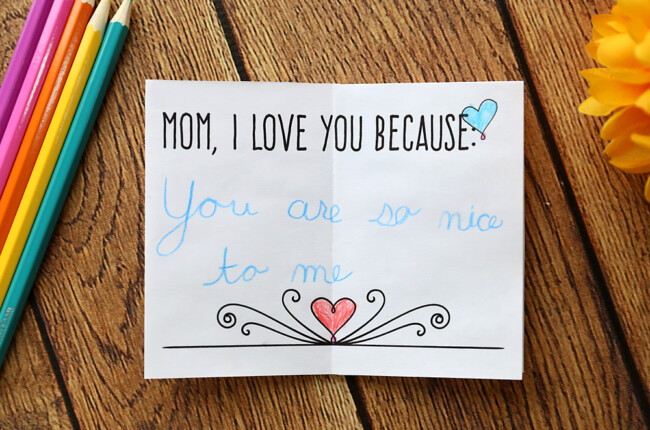 MOM, I LOVE YOU BECAUSE:
You are so nice
to me